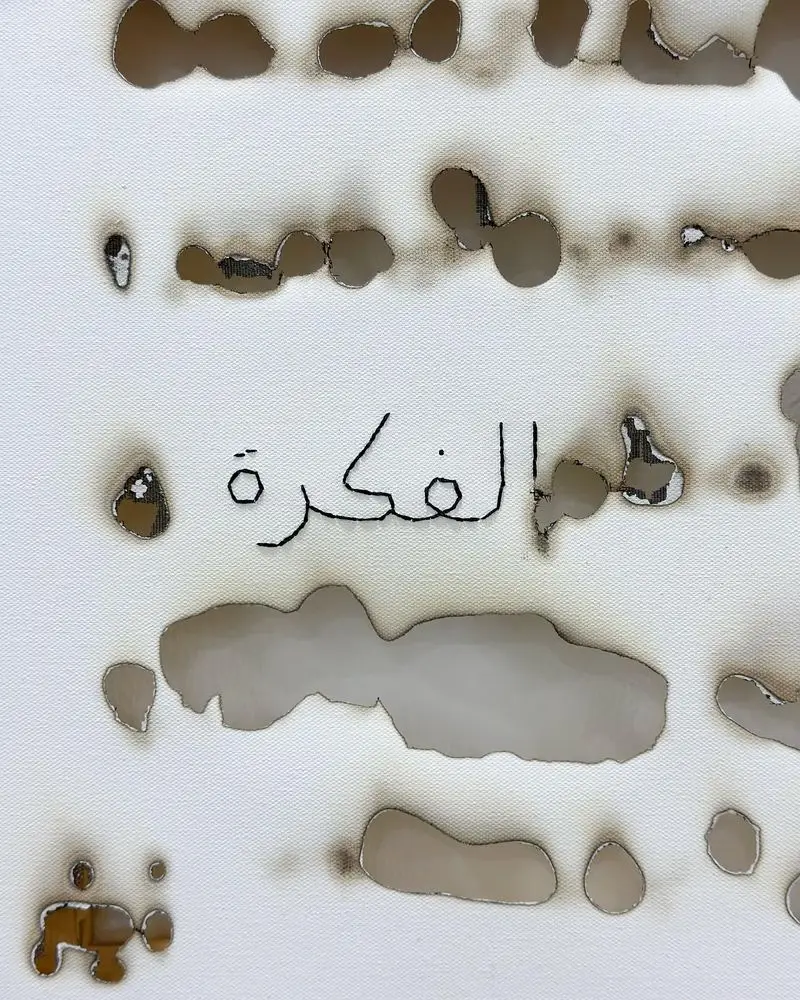 الفكرة